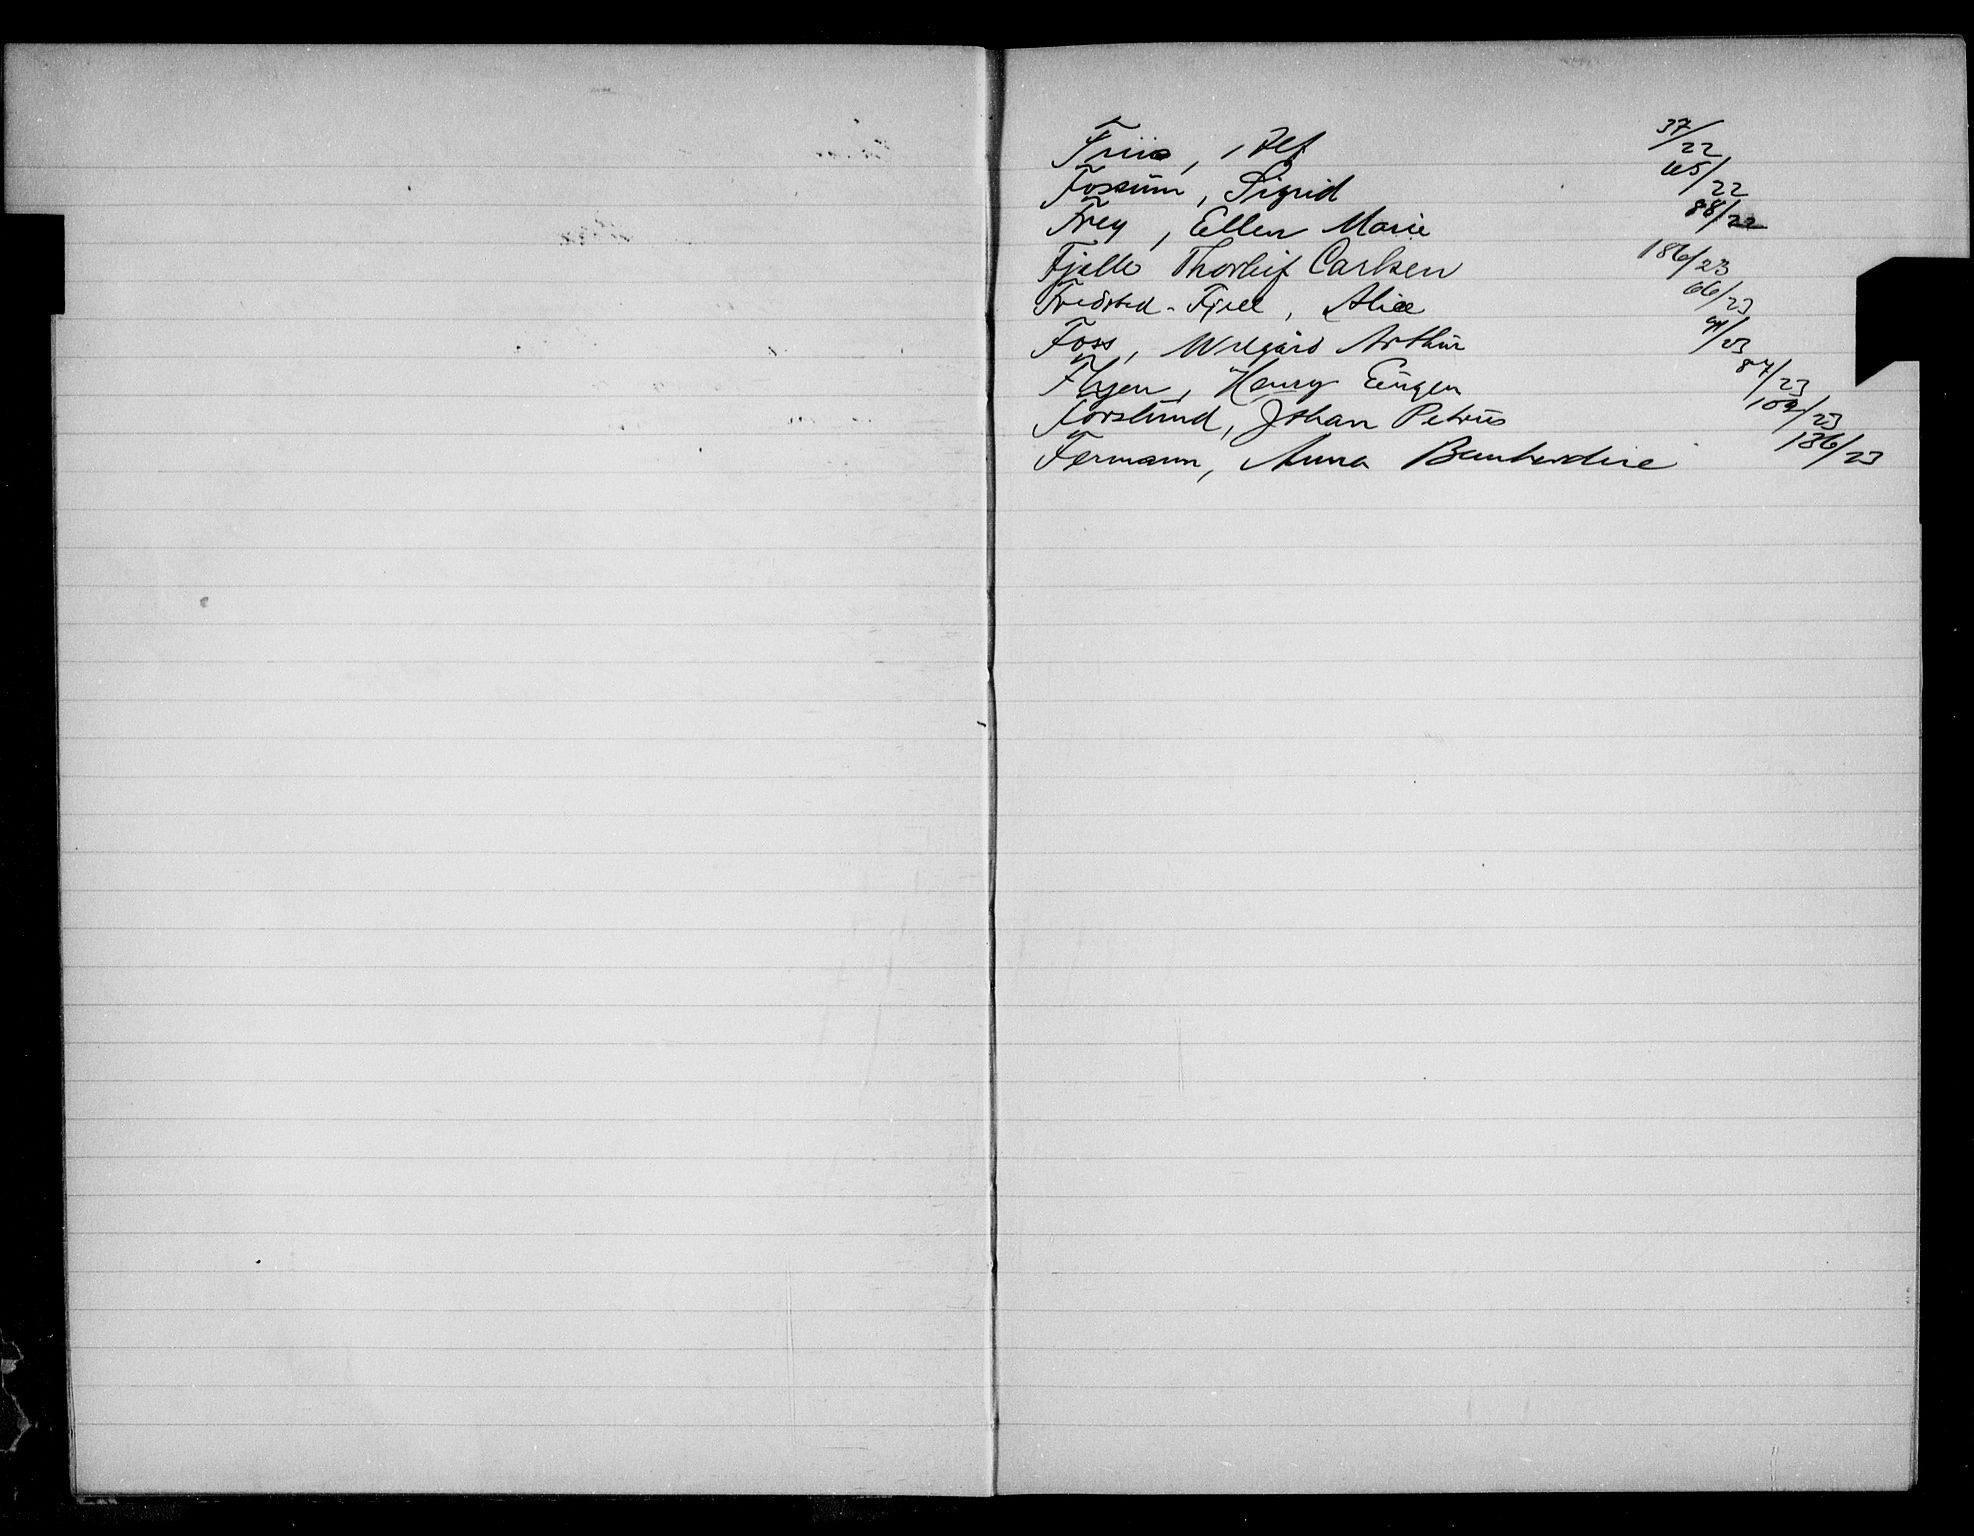 Friis, Alf 37/22
Fossum, Sigrid 65/22
Frey, Ellen Marie 88/22
Fjelle Thorleif Carlsen 186/23
Fredsted-Fjell, Alice 66/23
Foss, Arthur /23
Henry Eugen 87/23
Forslund, Johan Petrus 102/23
Fermann, Anna 186/23